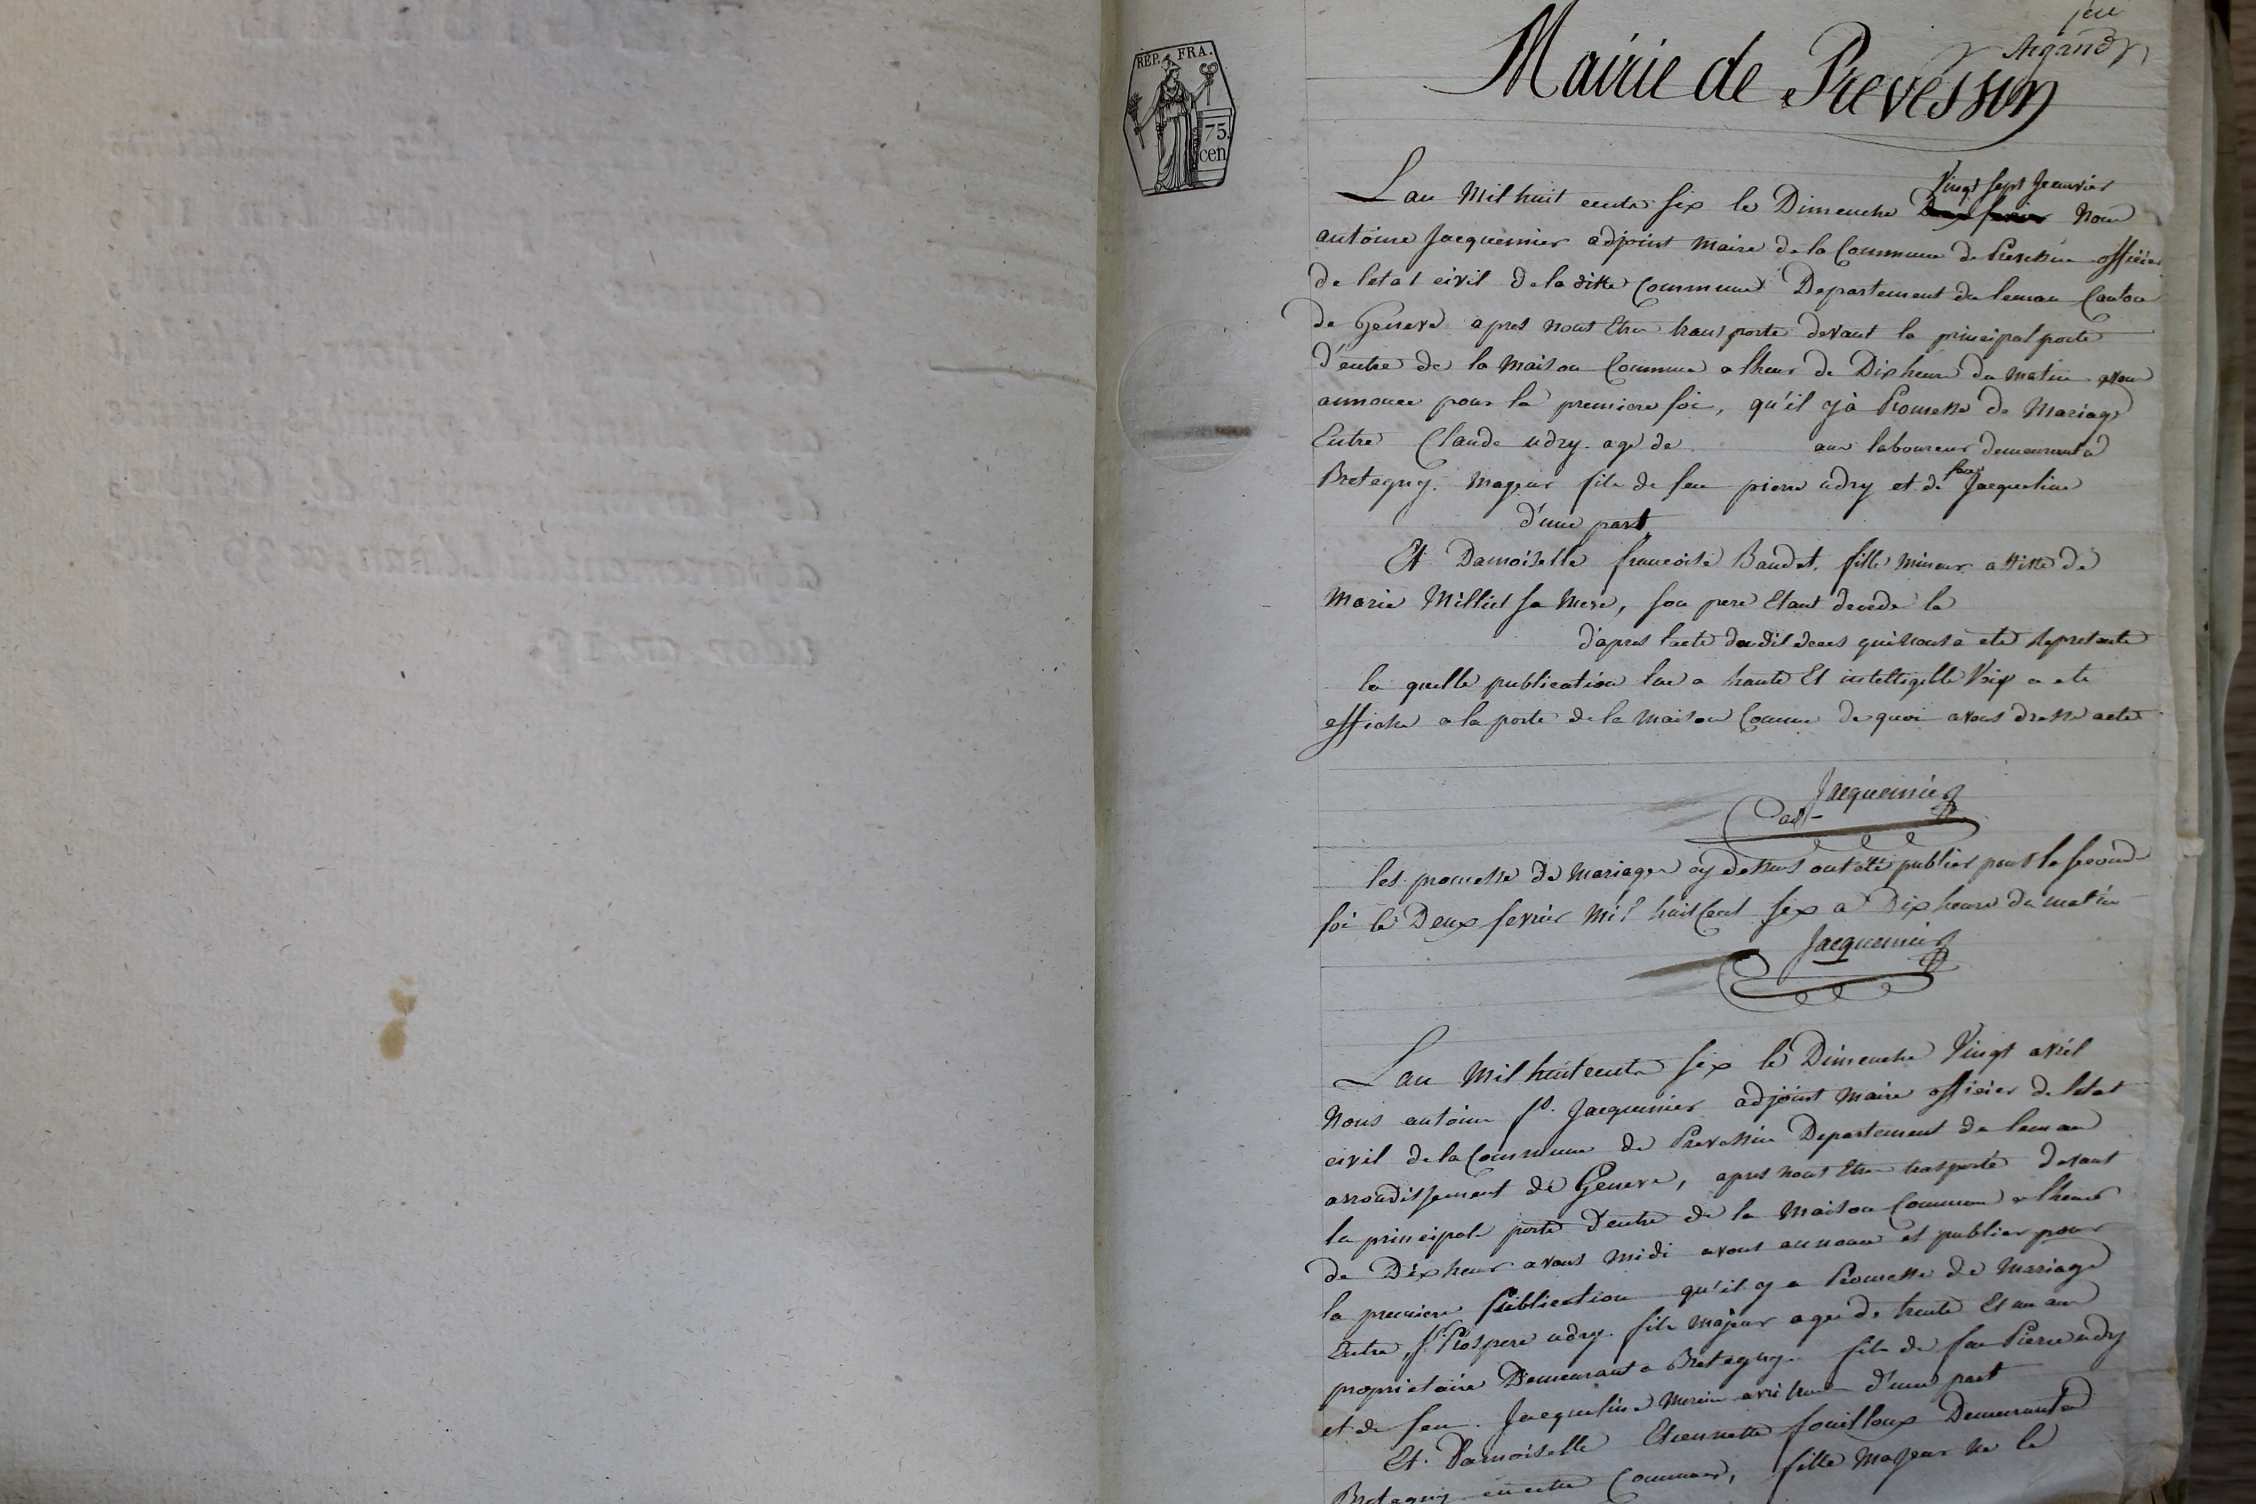 REP. FRA.
75.
cen
Argand
Mairie de Prevessin
Vingt sept Jeanvier
Lan Mil huit cents six le Dimenche Nous
antoine Jacquemier adjoint maire de la Commune de Prevessin officier
de letat civil de la ditte Commune Departement du leman Canton
de Geneve apres nous Etre transporte devant la principal porte
d'entre de la maison Commune a lheur de Dix heure du matin avons
annonce pour la premiere foi, qu'il y à Promesse de Mariage
Entre Claude udry age de ans laboureur demeurant a
Bretegny. Majeur fils de feu pierre udry et de feue Jacqueline
d'une part
Et Damoiselle francoise Baudet, fille mineur assiste de
Marie Milliet sa Mere, son pere Etant decede le
d'apres lacte dudit deces qui nous a ete represente
la quelle publication lue a haute Et intelligible Voix a ete
affiche a la porte de la maison Comune de quoi avons dresse acte
Jacquemier
adjt
les promesse de Mariage cy dessus ont été publier pour la second
foi le Deux fevrier Mil huit Cent six a Dix heure du matin
Jacquemier
Lan Mil huit cents six le Dimenche Vingt avril
Nous antoine fs. Jacquemier adjoint maire officier de letat
civil de la Commune de Prevessin Departement du leman
arrondissement de Geneve, apres nous Etre trasporté devant
la principale porte d'entre de la Maison Commune a lheur
de Dix heur avant midi avons annonce et publier pour
la premiere Publication qu'il y a Promesse de Mariage
Entre Prospere udry fils majeur age de trente Et un an
proprietaire Demeurant a Bretegny fils de feu Pierre udry
et de feu Jacqueline d'une part
Et Damoiselle Etiennette fouilloux Demeurant a
Bretegny Commune, fille Majeur Ne le